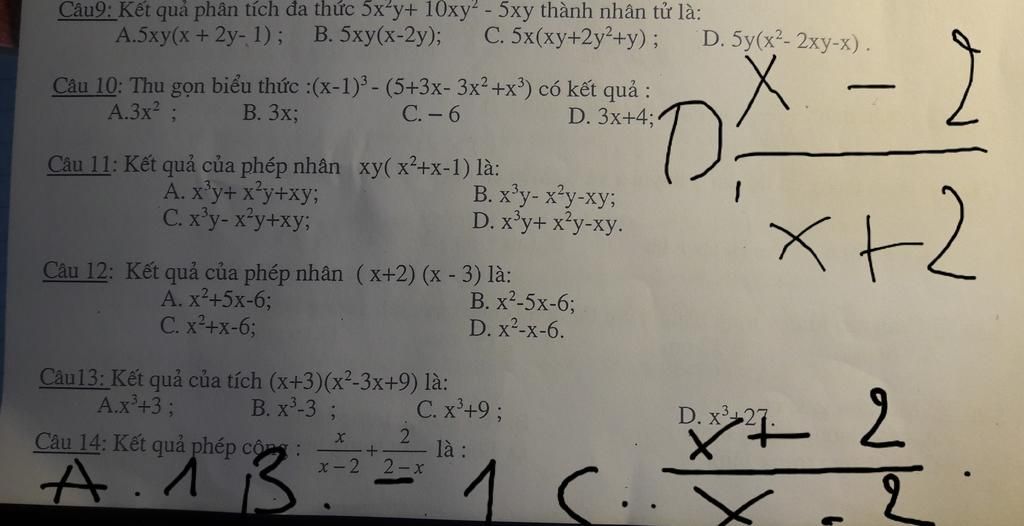 Câu9: Kết quả phân tích đa thức 5x²y+ 10xy² - 5xy thành nhân tử là:
A.5xy(x + 2y- 1) ; B. 5xy(x-2y); C. 5x(xy+2y²+y) ; D. 5y(x²- 2xy-x) .
Câu 10: Thu gọn biểu thức :(x-1)³ - (5+3x- 3x²+x³) có kết quả :
A.3x² ; B. 3x; C. – 6 D. 3x+4;
Câu 11: Kết quả của phép nhân xy( x²+x-1) là:
A. x³y+ x²y+xy; B. x³y- x²y-xy;
C. x³y- x²y+xy; D. x³y+ x²y-xy.
Câu 12: Kết quả của phép nhân ( x+2) (x - 3) là:
A. x²+5x-6; B. x²-5x-6;
C. x²+x-6; D. x²-x-6.
Câu13: Kết quả của tích (x+3)(x²-3x+9) là:
A.x³+3 ; B. x³-3 ; C. x³+9 ; D. x³+27.
Câu 14: Kết quả phép cộng : x/(x – 2) + 2/(2 – x) là :
A . 1 B. - 1 C. (x + 2)/(x - 2) .
D (x - 2)/(x + 2)